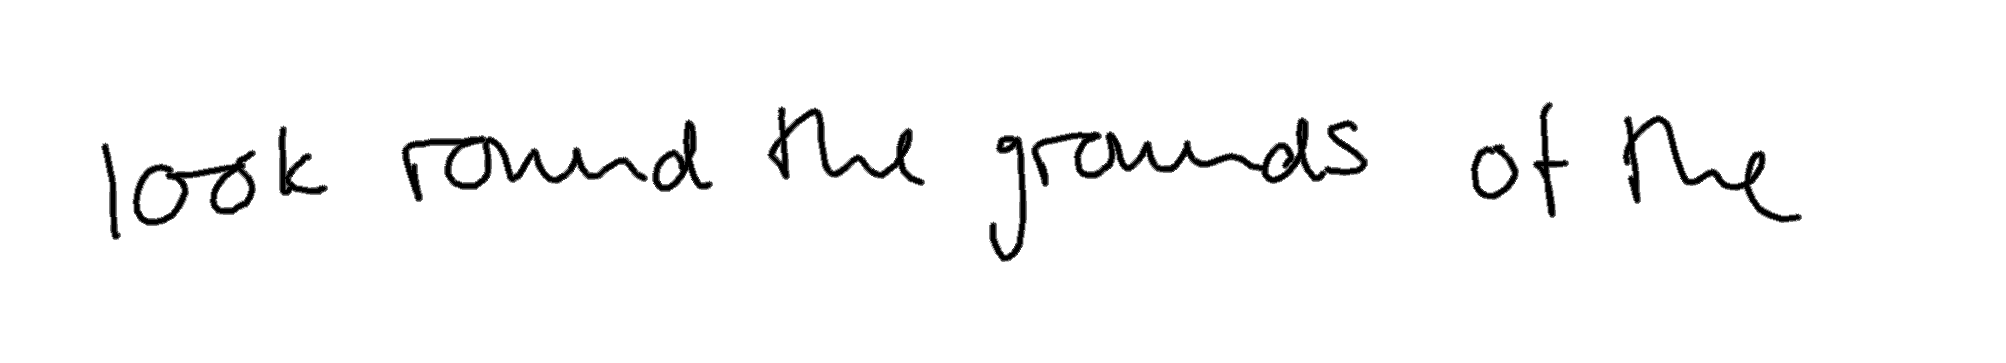 look round the grounds of the